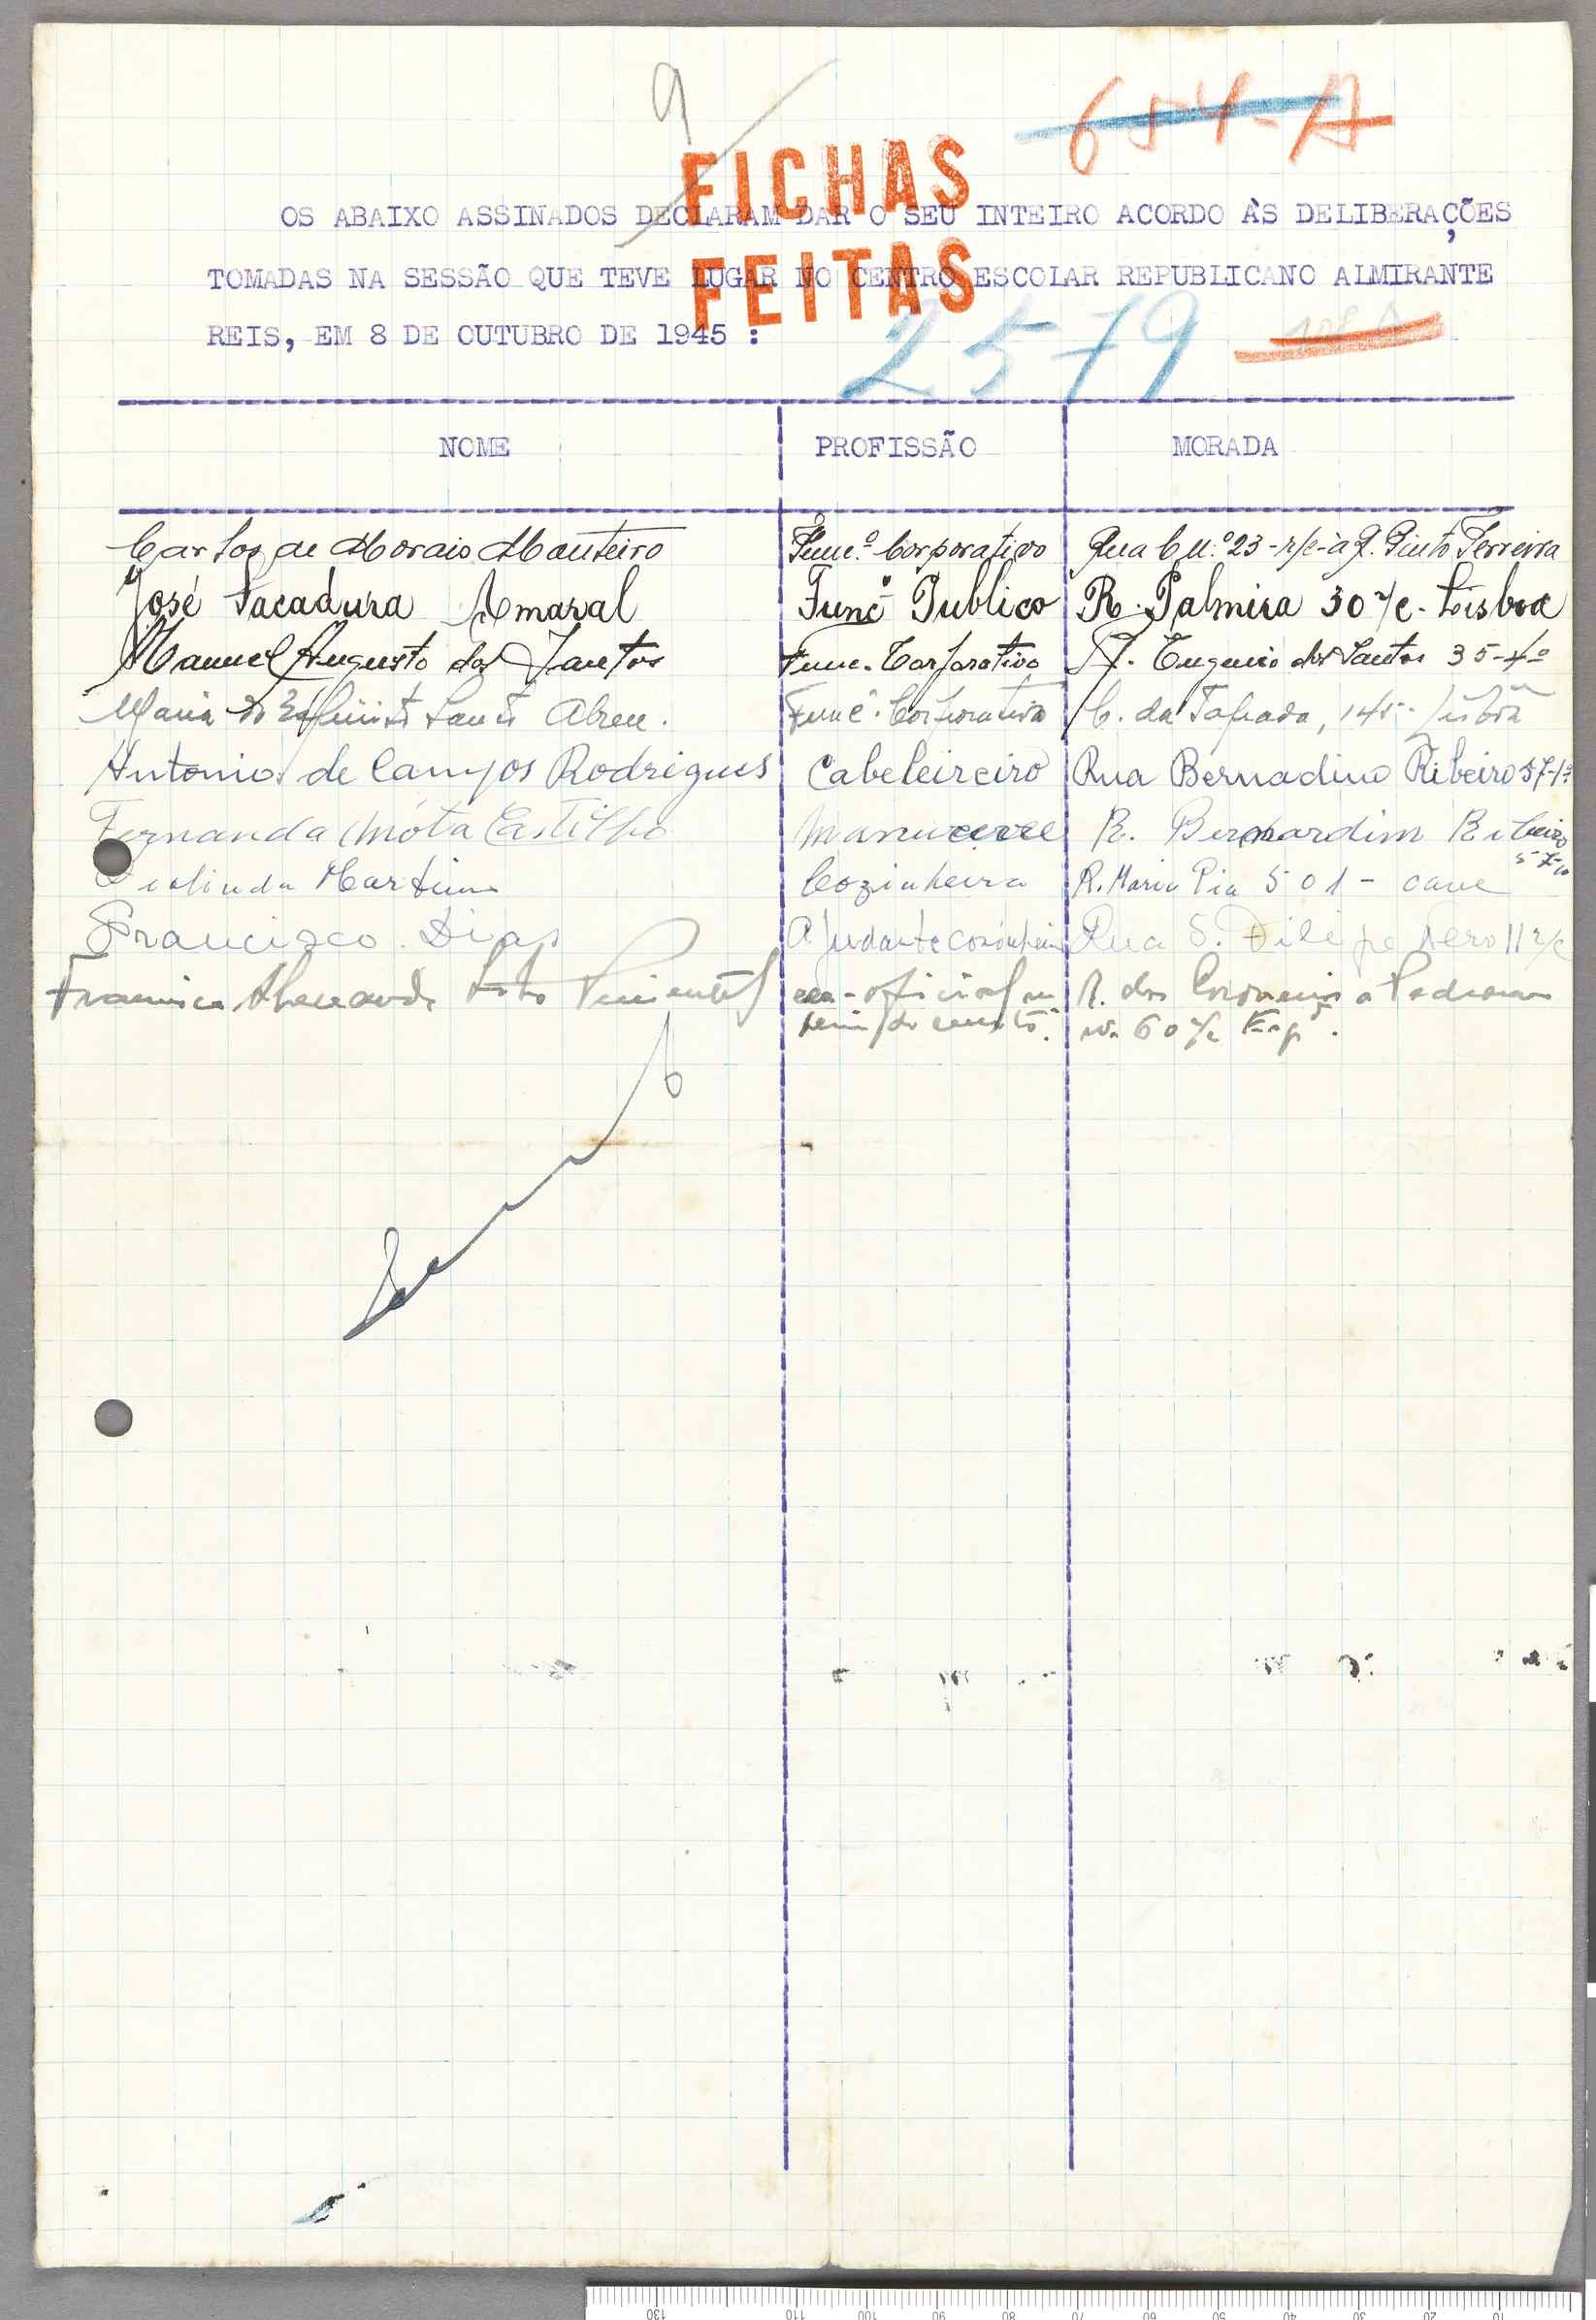 9
654-A
FICHAS
FEITAS
OS ABAIXO ASSINADOS DECLARAM DAR O SEU INTEIRO ACORDO ÀS DELIBERAÇÕES
TOMADAS NA SESSÃO QUE TEVE LUGAR NO CENTRO ESCOLAR REPUBLICANO ALMIRANTE
REIS, EM 8 DE OUTUBRO DE 1945 :
2579
NOME PROFISSÃO MORADA
Carlos de Morais Monteiro Func.º Corporativo Rua C n.º 23-r/c-à Q. Pinto Ferreira
José Sacadura Amaral Func.º Publico R. Palmira 30 r/c - Lisboa
Manuel Augusto dos Santos Func. Corporativo R. Eugenio dos Santos 35-4º
Maria do Espírito Santo Abreu. Func. Corporativa C. da Tapada, Lisboa
Antonio de Campos Rodrigues Cabeleireiro Rua Bernadino Ribeiro 57-1º
Fernanda Móta Castilho Manucure R. Bernardim Ribeiro
57-1º
Martins Cozinheira R. Maria Pia 501 - cave
Francisco Dias Ajudante cosinheiro Rua S. Filipe Nero 11 r/c
Pimentel ex-oficial R. dos a
60 r/c